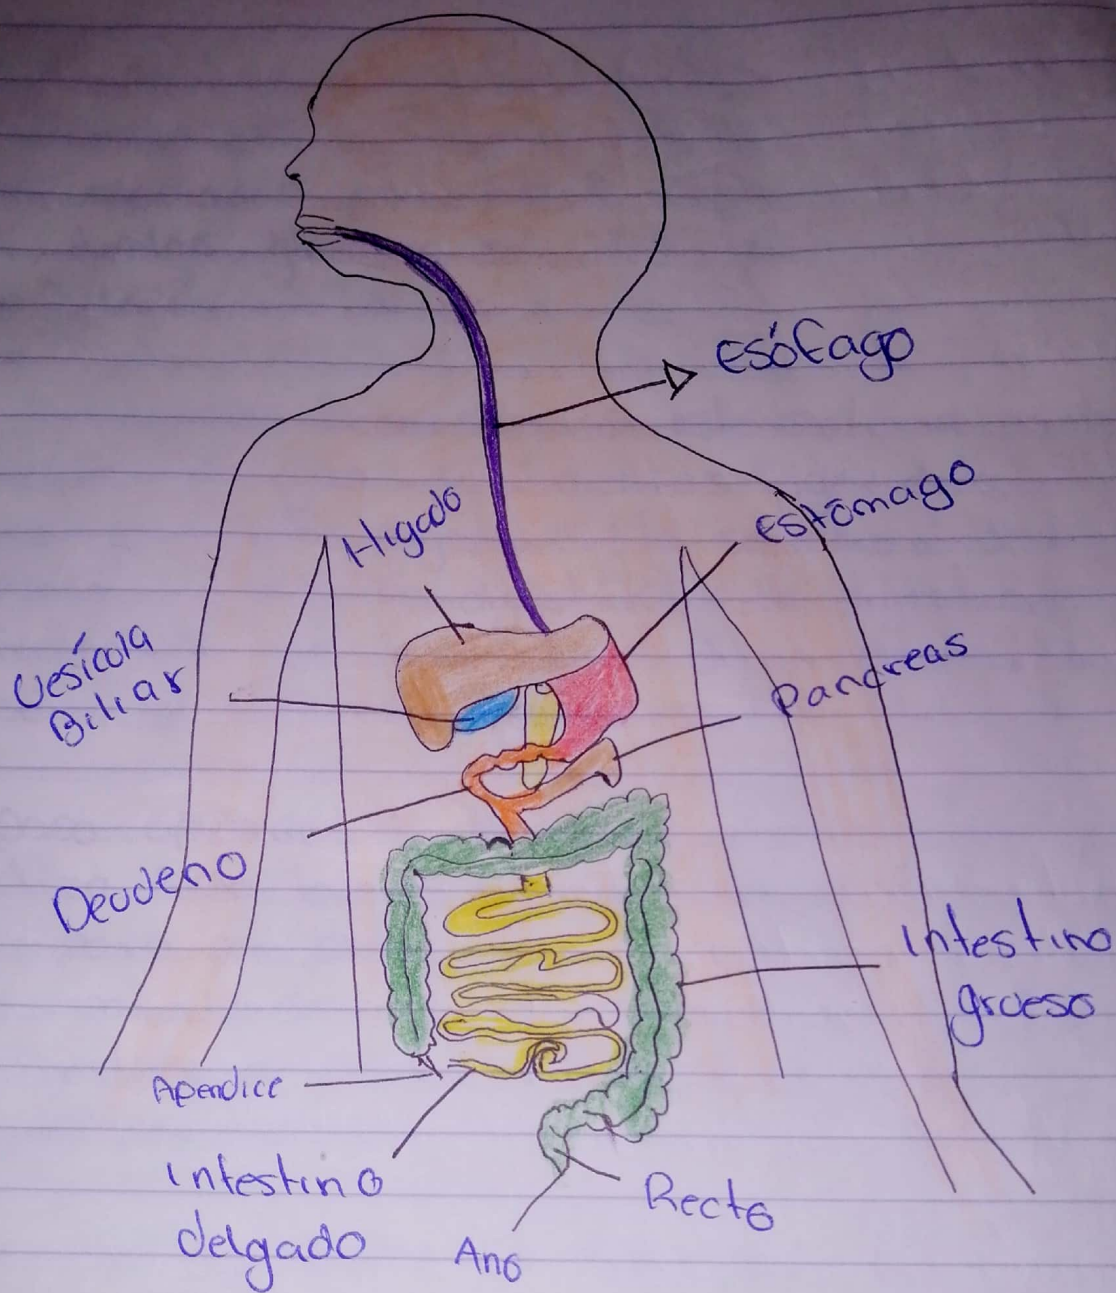 Esófago
Estómago
Higado
Vesícola
Biliar
Pancreas
Deodeno
Intestino
grueso
Apendice
Intestino
delgado
Recto
Ano